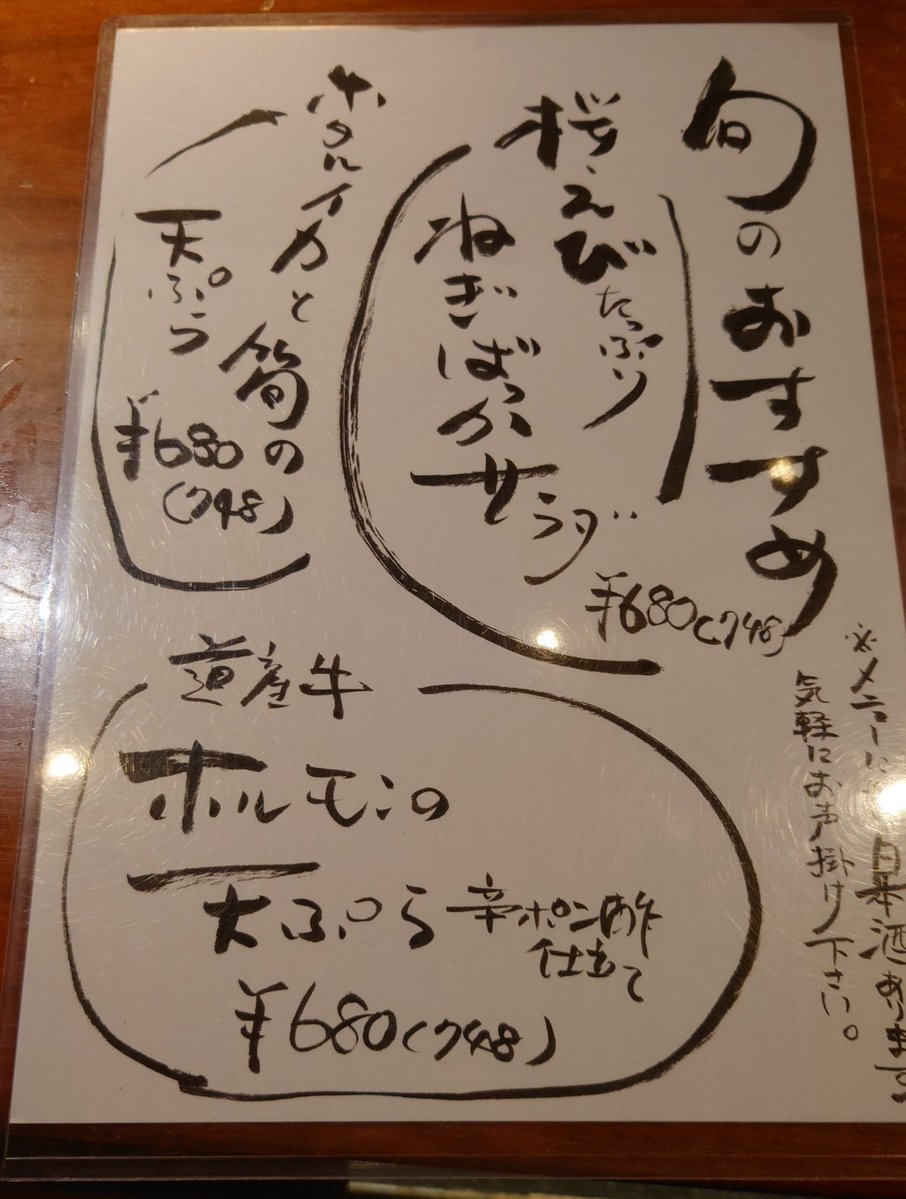 旬のおすすめ
桜えびたっぷり
ねぎばっかサラダ
¥680(748)
ホタルイカと筍の
天ぷら
¥680
(748)
道産牛
ホルモンの
天ぷら
辛ポン酢
仕立て
¥680(748)
※メニューに 日本酒あります
気軽にお声掛け下さい。